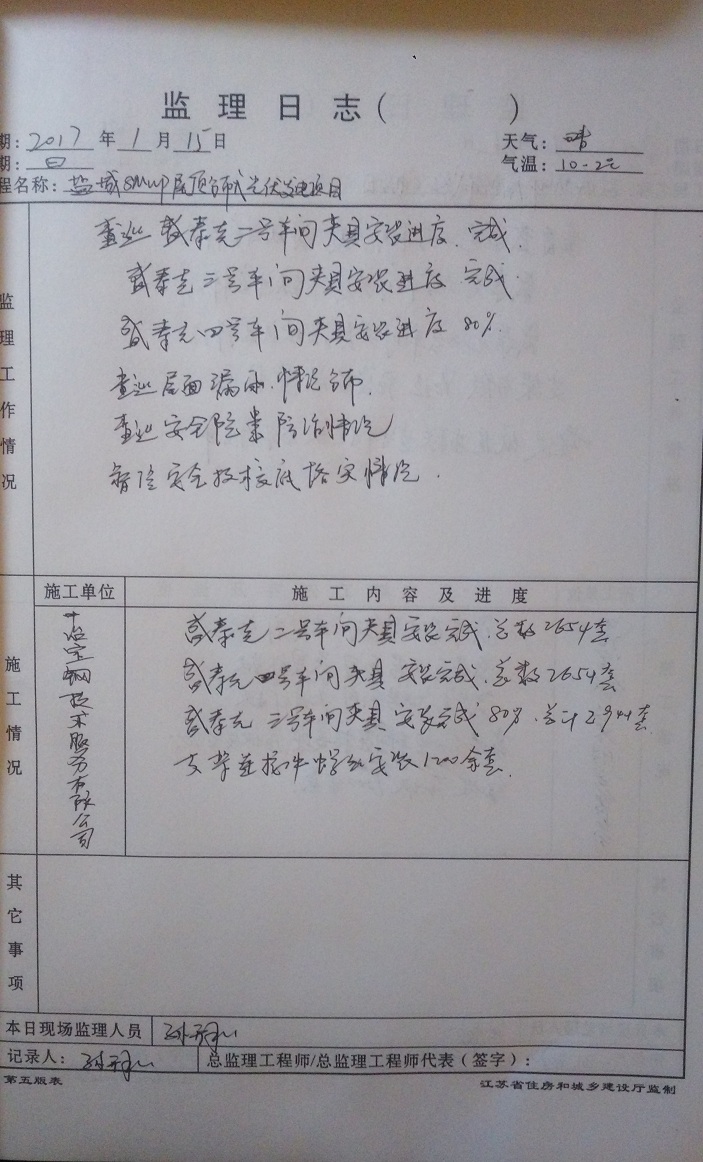 监理日志（ ）
期：2017年1月15日
天气：晴
期：日
气温：10-2℃
程名称：盐城8MWP屋顶分布式光伏发电项目
监理工作情况
查巡 盛泰克二号车间夹具安装进度，完成
盛泰克三号车间夹具安装进度 完成
盛泰克四号车间夹具安装进度80%.
查巡屋面漏雨情况
查巡安全隐患防治情况
安全技 底落实情况.
施工单位
施工内容及进度
施工情况
宝钢技术服务有限公司
盛泰克二号车间夹具安装完成.总数2654套
盛泰克四号车间夹具 安装完成.总数2654套
盛泰克三号车间夹具 安装完成80%.总计2941套
支架连接件 安装1200余套.
其它事项
本日现场监理人员
记录人：
总监理工程师/总监理工程师代表（签字）：
第五版表
江苏省住房和城乡建设厅监制